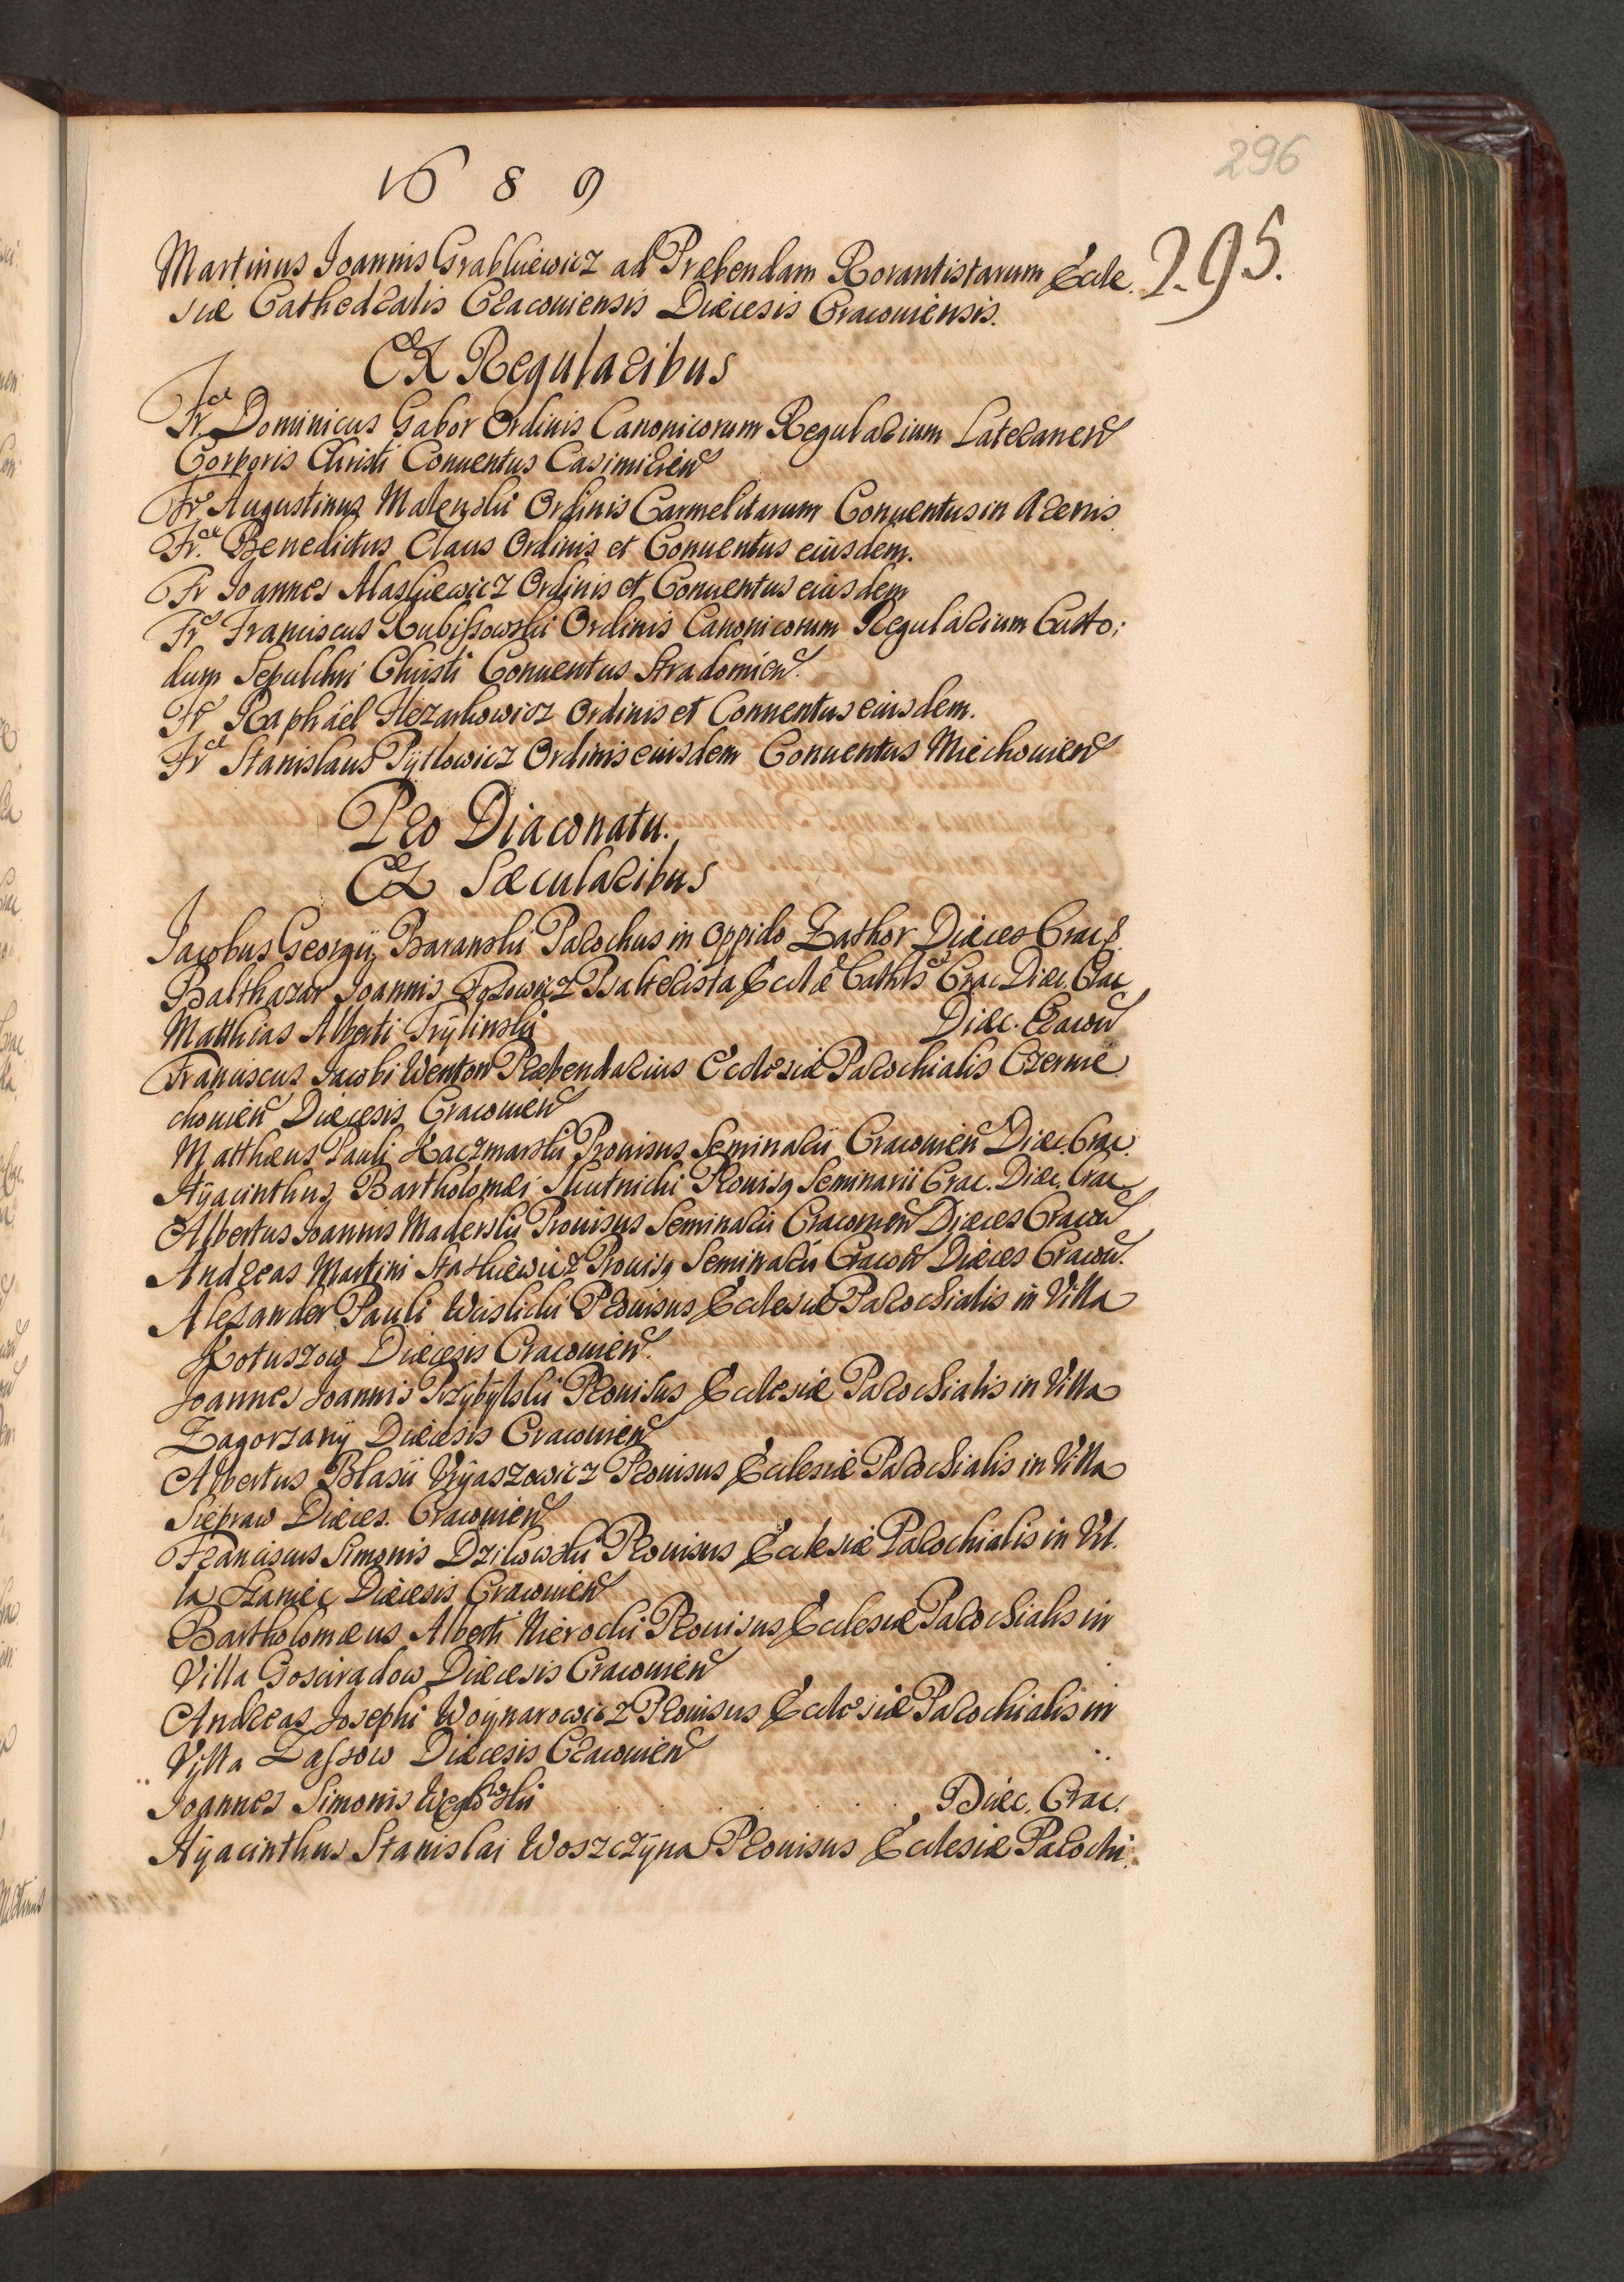 296
1689
295.
Martinus Joannis Grabkiewicz ad Præbendam Rorantistarum Eccle
siæ Cathedralis Cracouiensis Diæcesis Cracouiensis.
Ex Regularibus
Fr. Dominicus Gabor Ordinis Canonicorum Regularium Lateranen
Corporis Christi Conuentus Casimirien
Fr Augustinus Ordinis Carmelitarum Conuentus in Arenis
Fr. Benedictus Claus Ordinis et Conuentus eiusdem.
Fr Joannes Ordinis et Conuentus eiusdem
Fr Franciscus Ordinis Canonicorum Regularium Custo;
dum Sepulchri Christi Conuentus Stradomien.
Fr Raphäel Ordinis et Conuentus eiusdem.
Fr Stanislaus Pÿtlowicz Ordinis eiusdem Conuentus Miechouien
Pro Diaconatu.
Ex Sæcularibus
Jacobus Georgÿ Baranski Parochus in Oppido Zathor Diæces Crac
Balthazar Joannis Psalterista Eccl æ Cathls Crac Diæc. Crac
Matthias Alberti Trÿlinski Diæc. Cracou
Franciscus Jacobi Wenton Præbendarius Ecclesiæ Parochialis Czernie
chouien Diæcesis Cracouien
Matthæus Pauli Kaczmarski Prouisus Seminarii Cracouien Diæc. Crac.
Hÿacinthus Bartholomæi Skutnicki Prouisq Seminarii Crac. Diæc. Crac
Albertus Joannis Maderski Prouisus Seminarii Cracouien Diæces Cracou
Andreas Martini Prouisq Seminarii Cracou Diæces Cracou.
Alexander Pauli Wislicki Prouisus Ecclesiæ Parochialis in Villa
Kotuszow Diæcesis Cracouien.
Joannes Joannis Przÿbÿlski Prouisus Ecclesiæ Parochialis in Villa
Zagorzanÿ Diæcesis Cracouien
Albertus Blasii Prouisus Ecclesiæ Parochialis in Villa
Siepraw Diæces. Cracouien
Franciscus Simonis Dzikowski Prouisus Ecclesiæ Parochialis in Vil.
la Szaniec Diæcesis Cracouien
Bartholomæus Alberti Nierocki Prouisus Ecclesiæ Parochialis in
Villa Gosciradow Diæcesis Cracouien
Andreas Josephi Woÿnarowicz Prouisus Ecclesiæ Parochialis in
Vÿlla Zassow Diæcesis Cracouien
Joannes Simonis Diæc. Crac.
Hÿacinthus Stanislai Woszczÿna Prouisus Ecclesiæ Parochi